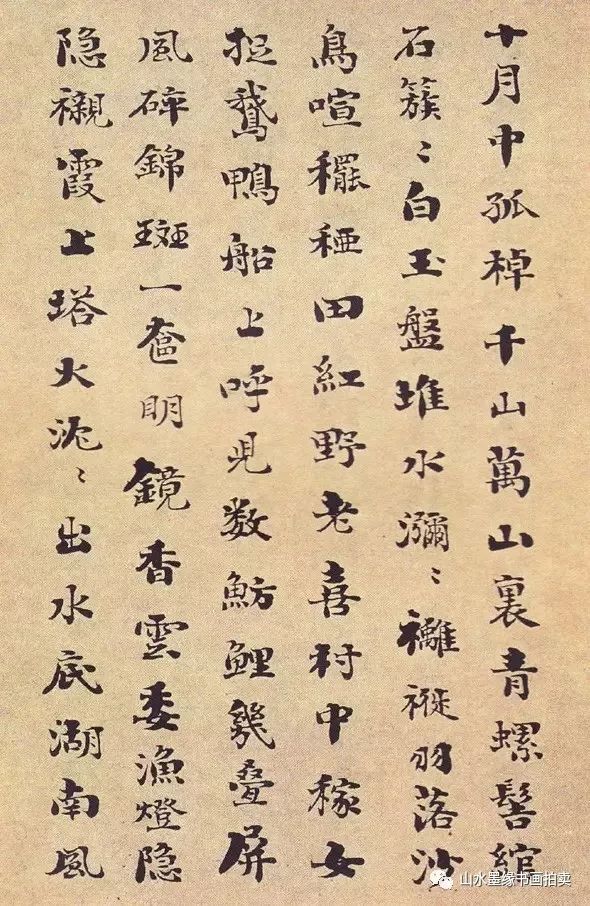 十月中孤棹千山萬山裏青螺髻綰
石簇〻白玉盤堆水瀰〻襳褷羽落沙
鳥喧䆉稏田紅野老喜村中稼女
捉鵝鴨船上呼児数魴鯉幾疊屏
風碎錦斑一奩明鏡香雲委漁燈隐
隐襯霞上塔火泥〻出水底湖南風
山水墨缘书画拍卖